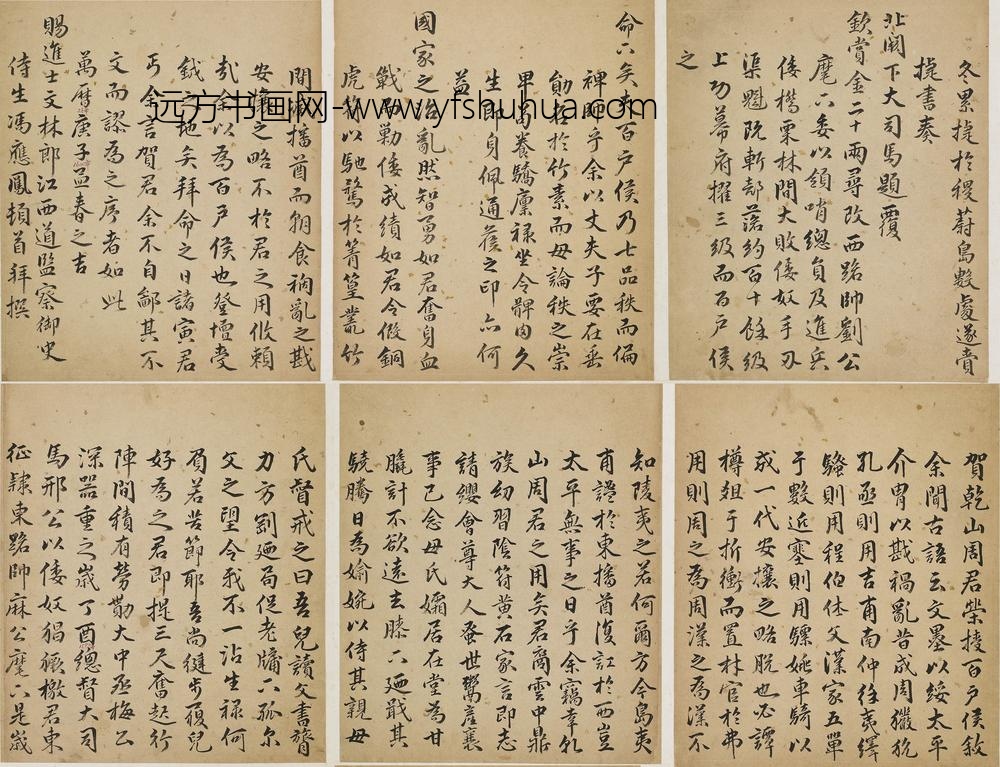 賀乾山周君榮授百戶侯敘
余聞古語云文墨以綏太平
介冑以戡禍亂昔成周玁狁
孔亟則用吉甫南仲徐夷繹
騷則用程伯休父漢家五單
于數近塞則用驃姚車騎以
成一代安攘之略脫也必譚
樽俎于折衝而置材官於弗
用則周之為周漢之為漢不
知陵夷之若何爾方今島夷
甫證於東播酋復訌於西豈
太平無事之日乎余竊幸乾
山周君之用矣君裔雲中鼎
族幼習陰符黃石家言即志
請纓會尊大人蚤世鬻產襄
事已念母氏孀居在堂為甘
膬計不欲遠去膝下廼戢其
驍騰日為婾婉以侍其親母
氏督戒之曰吾兒讀父書膂
力方剛廼局促老牖下孤尔
父之望令我不一沾生祿何
若苦節耶吾尚健步視兒
好為之君即提三尺奮起行
陣間積有勞勩大中丞梅公
深器重之歲丁酉總督大司
馬邢公以倭奴猖獗檄君東
征隸東路帥麻公麾下是歲
冬累捷於稷蔚島數處遂賫
捷書奏
北闕下大司馬題覆
欽賞金二十兩尋改西路帥劉公
麾下委以領哨總員及進兵
倭橋栗林間大敗倭奴手刃
渠魁既斬部落約百十餘級
上功幕府擢三級而百戶侯
之
命下矣夫百戶侯乃七品秩而偏
裨職乎余以丈夫子要在垂
勛於竹素而毋論秩之崇
卑豢驕廩祿坐令髀肉久
生即身佩通侯之印亦何
益
國家之治亂然智勇如君奮身血
戰勦倭茂績如君令假銅
虎以馳騖於箐篁叢竹
間播酋而朝食禍亂之戡
安攘之略不於君之用攸賴
哉余以為百戶侯也登壇受
鉞之地矣拜命之日諸寅君
丐余言賀君余不自鄙其不
文而謬為之序者如此
萬曆庚子孟春之吉
賜進士文林郎江西道監察御史
侍生馮應鳳頓首拜撰
远方书画网-www.yfshuhua.com